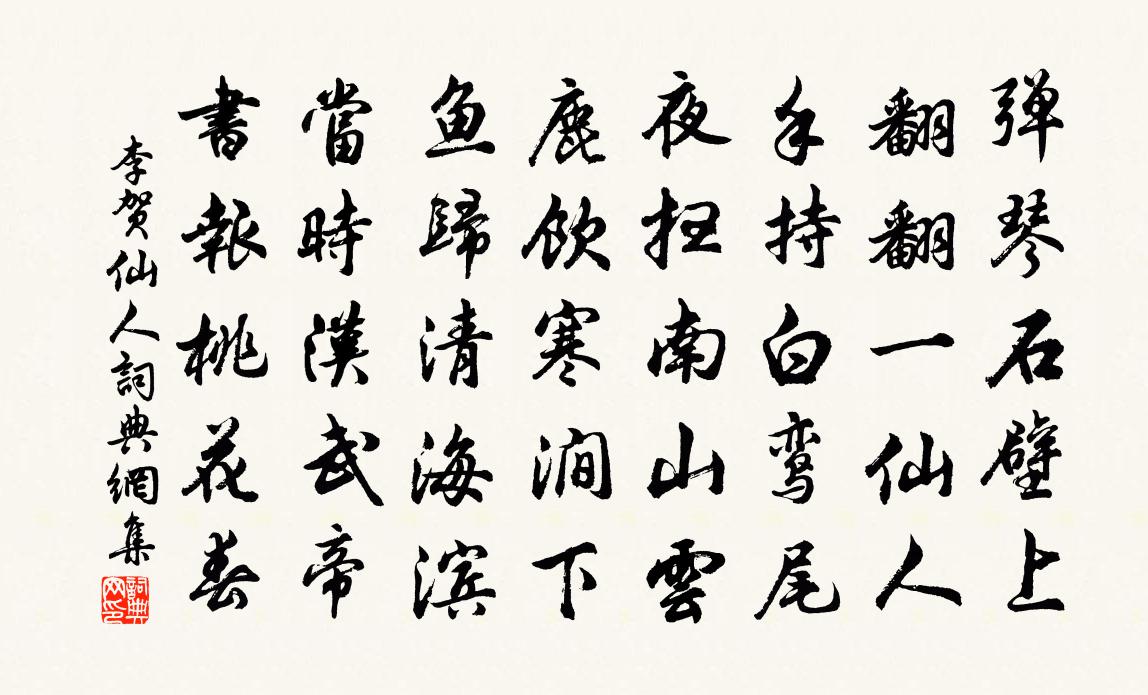 弹琴石壁上
翻翻一仙人
手持白鸾尾
夜扫南山雲
鹿飲寒澗下
鱼歸清海滨
當時漢武帝
書報桃花春
李贺仙人詞典網集
詞典网印